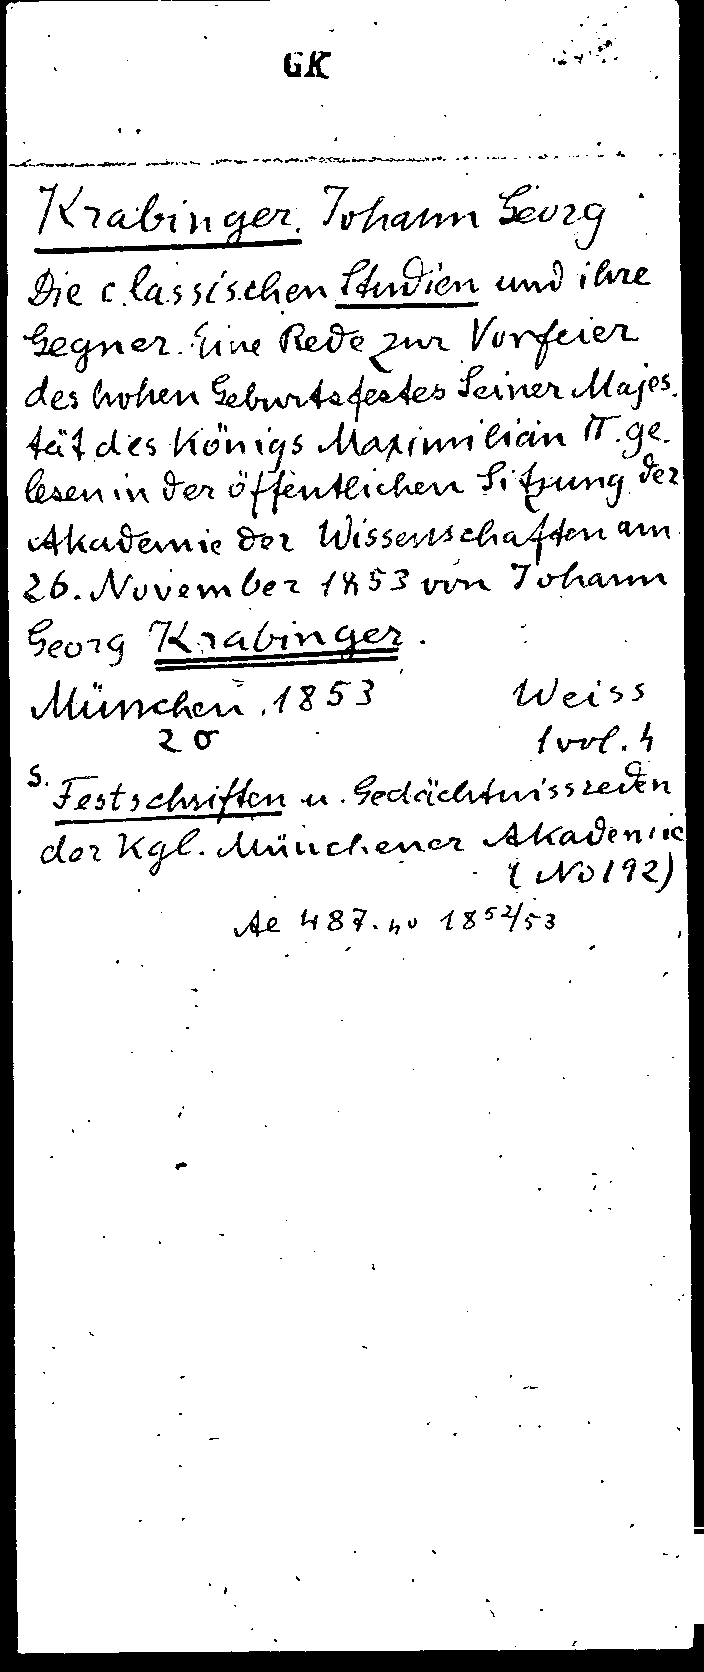 GK
Krabinger. Johann Georg
Die classischen Studien und ihre
Gegner. Eine Rede zur Vorfeier
des hohen Geburtsfestes Seiner Majes-
tät des Königs Maximilian II. ge-
lesen in der öffentlichen Sitzung der
Akademie der Wissenschaften am
26. November 1853 von Johann
Georg Krabinger.
München. 1853 Weiss
1 vol. 4
s. Festschriften u. Gedächtnissreden
der Kgl. Münchener Akademie
(No 192)
Ae 487. 4o 1852/53